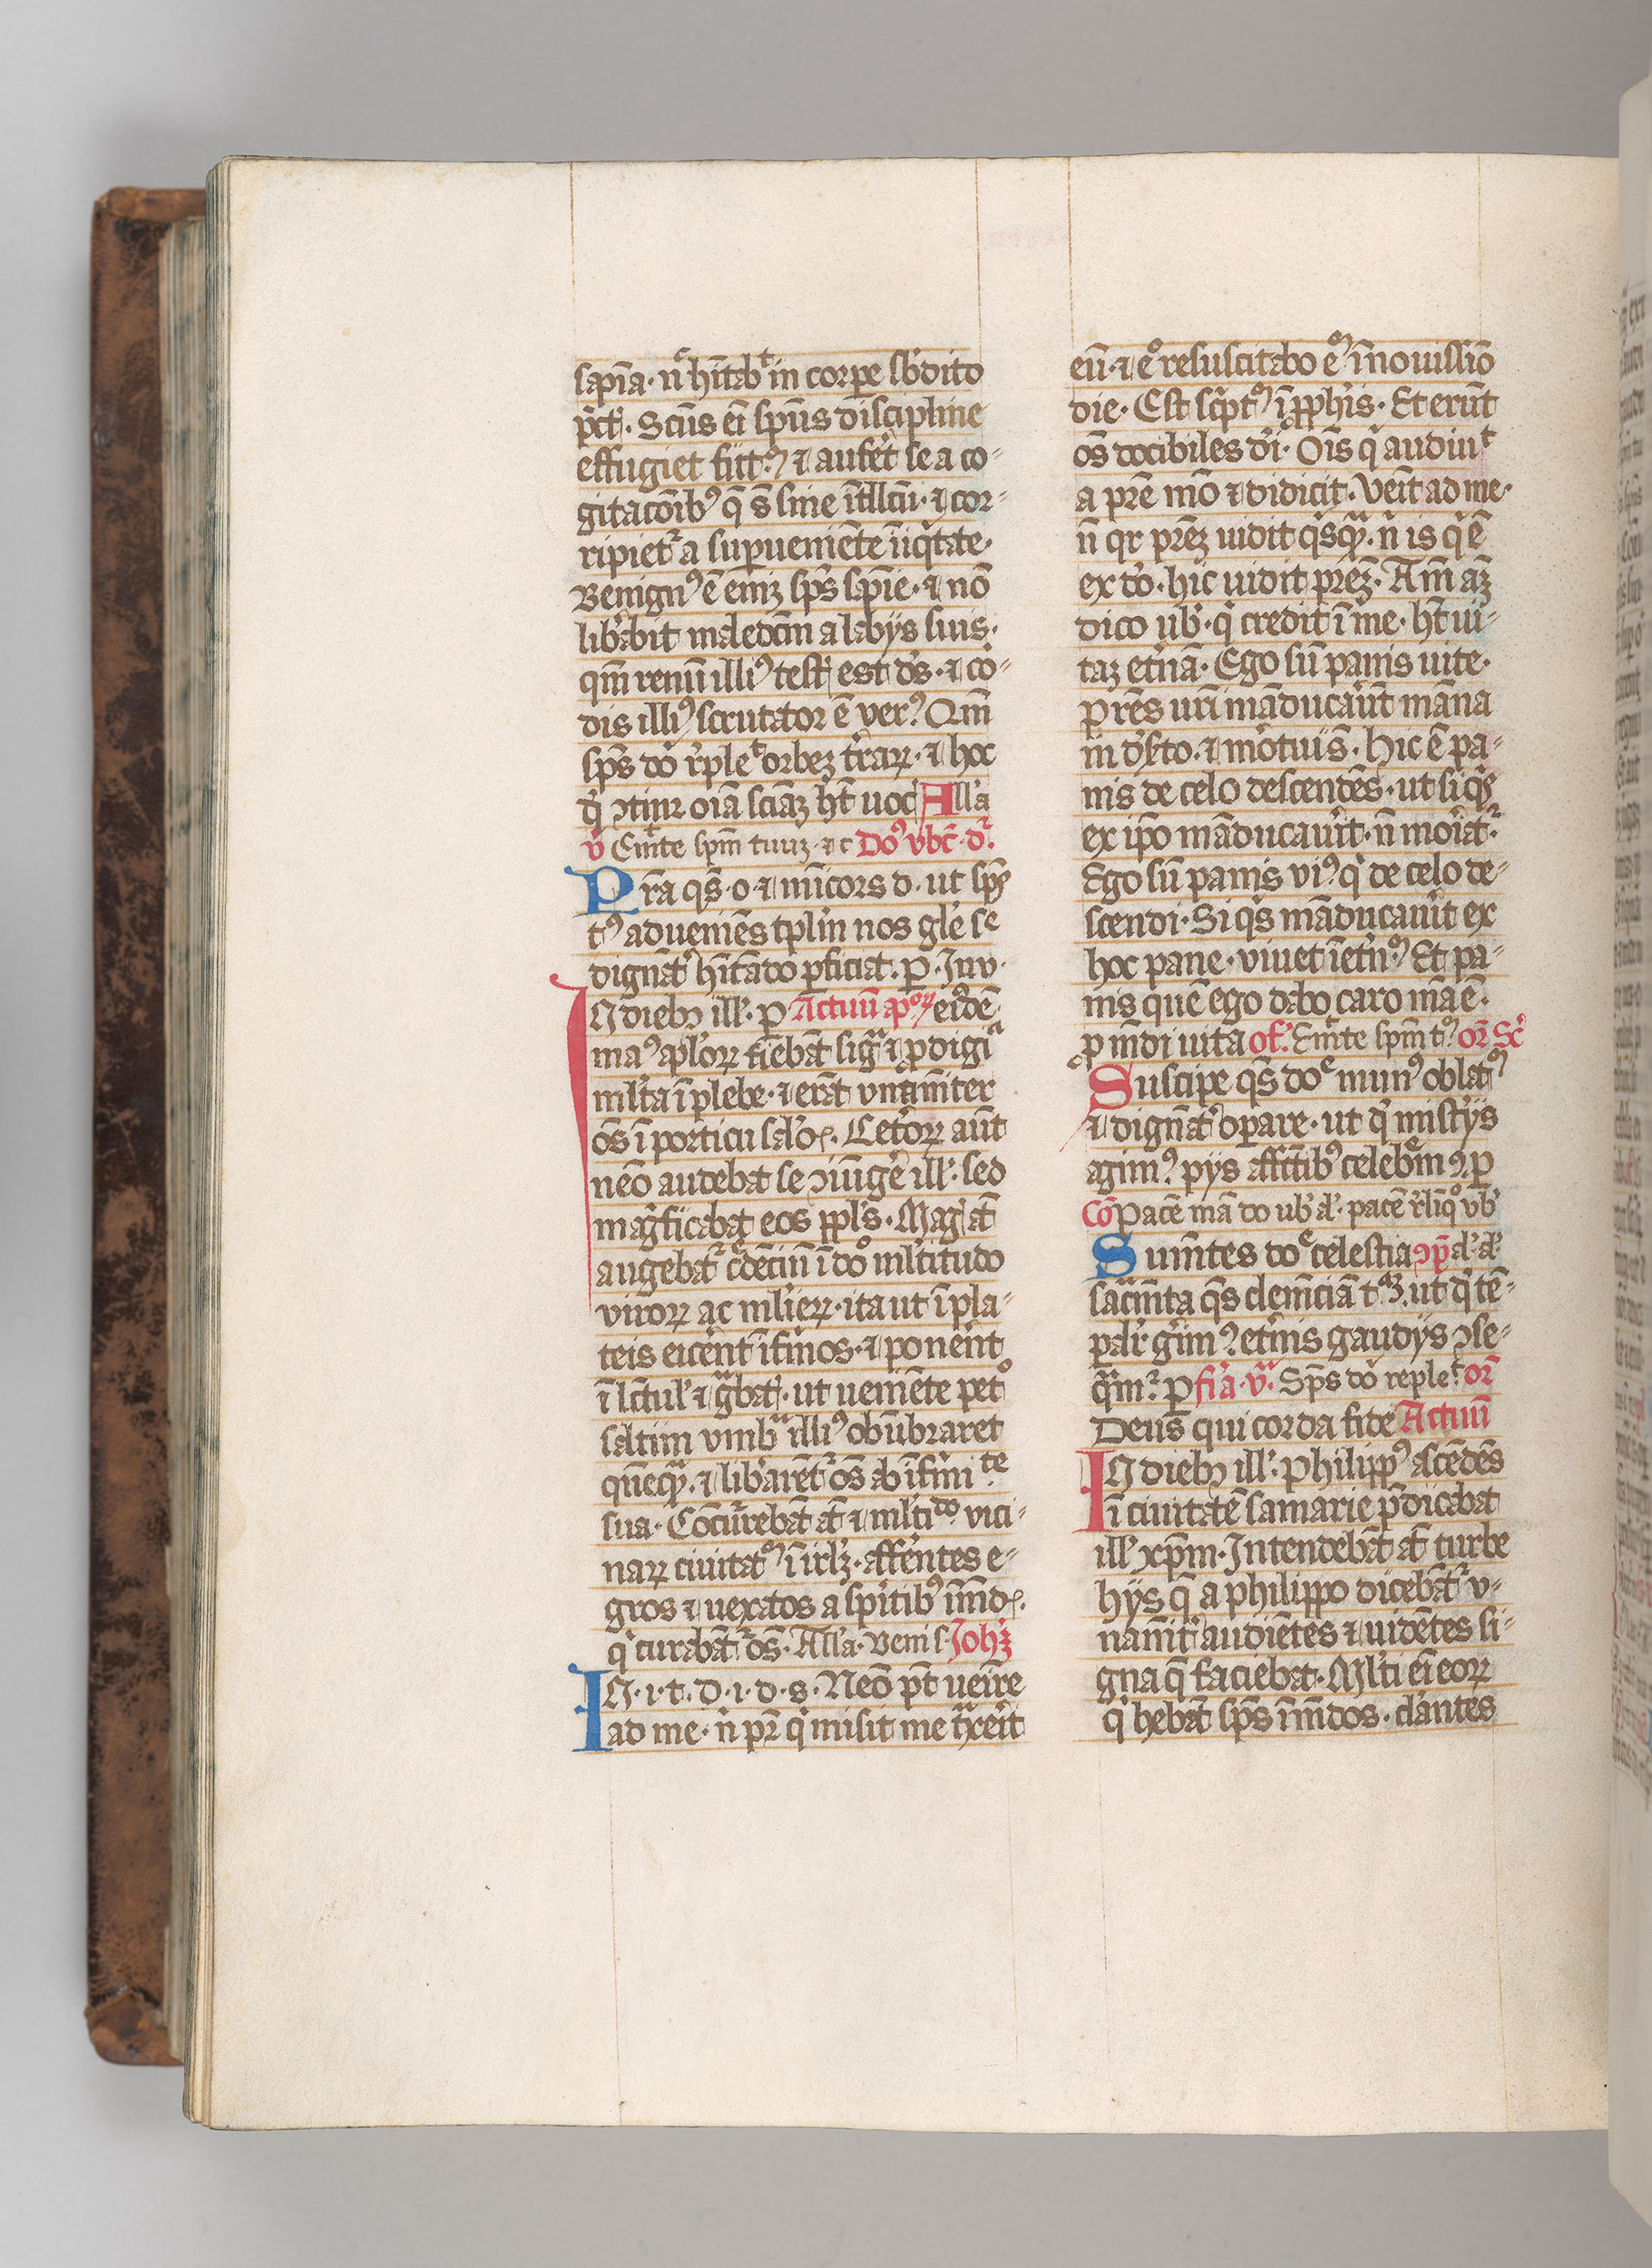 sapīa· n̄ hītabᵗ in corpe sb'dito
pct̄i· Scūs eī spūs discipline
effugiet fitt᷒ ⁊ aufet se a co-
gitacōib᷒ q̄ s̄ sine ītllcū· ⁊ cor-
ripiet᷑ a supueniēte īiq̄tate·
Benign᷒ ē eniz sp̄s sp̄ie· ⁊ nō
lib'abit maledcm̄ a labijs suis·
qm̄ renū illi᷒ testꝭ est d's· ⁊ co-
dis illi᷒ scrutator ē ver᷒ Qm̄
sp̄s do' r'pleᵗ orbez t'raꝝ· ⁊ hoc
q' ↄtinꝫ oīa sciāz h̄t uoc' All'a
v̄ Emitte spm̄ tuuz ⁊c Do᷒ vbc̄· or̄·
Pr̄a qs̄· o· ⁊ mīcors d· ut sp̄s
t᷒ adueniēs tpl'm nos gl'e sᵉ
dignāt' hītādo pficiat· p· Inv·
IN dieb᷒ ill'· p Actuū ap̄oꝝ eide
ma᷒ apl'oꝝ fiebāt sigᵃ ⁊ pdigiᵃ
ml'ta ī plebe· ⁊ erāt vnanīter
os̄ ī porticu sal'oꝭ· Cet'oꝝ aūt
neō audebat se ↄiūgē ill'· sed
magⁱficabāt eos ppl's· Magⁱ āt
augebat᷑ cᵉdēciū ī dō ml'titudo
viroꝝ ac ml'ieꝝ· ita ut ī pla-
teis eicēnt īfmos· ⁊ ponent
ī lct̄ul' ⁊ gᵃbatꝭ· ut ueniēte petᵒ
saltim vmbᵃ illi᷒ obūbraret
quēqᵃꝫ· ⁊ lib'arēt᷑ os̄ ab īfⁱmiᵗᵉ
sua· Cōcurrebāt āt ⁊ ml'tiᵈᵒ vici-
naꝝ ciuitatᵘ᷒ ī irl'ꝫ· affēntes e-
gros ⁊ uexatos a spītib᷒ īmdꝭ·
qⁱ curabāt᷑ os̄· All'a· Veni s· Joh'ꝫ
IN· i· t· d· i· d· s· Neō pt̄ ueīre
ad me· n̄ pr̄ qⁱ misit me tᵃxeīt
eū· ⁊ eᵒ resuscitabo eᵘ ī nouissīo
die· Est sc'pt᷒ ī pph'is· Et erūt
os̄ docibiles d'i· Oīs q' audiuᵗ
a pr̄e m̄o ⁊ didicit· veīt ad me·
n̄ qꝛ pr̄ez uidit q's qᵃꝫ· n̄ is q' ē
ex do'· hic uidit pr̄ez· Am̄ am̄
dico ub'· q' credit ī me· h̄t ui-
taz et'nā· Ego sū panis uite·
pr̄es urī māducaūt māna
in d's'to· ⁊ mōtui s̄· Hic ē pa-
nis de celo descendēs· ut siq's
ex ip̄o māducauīt· n̄ moīat᷑
Ego sū panis vi᷒ q' de celo de-
scendi· Si q's māducauīt ex
hoc pane· viuet ī etn'᷒ Et pa-
nis quē ego dabo caro mā ē·
p mdi uita of· Emitte spm̄ t᷒ or̄ Sc'
Suscipe qs̄ doᵉ mun᷒ oblat᷒
⁊ dignāt' opare· ut q' mist'ijs
agim᷒ pijs affctib᷒ celebᵉm᷒ p
Cō Pacē mā do ub' al'· pacē r'liq° vb'
Sumtes doᵉ celestia ↄp̄ al' al'
sacm̄ta qs̄ clemēciā tᵃꝫ ut q' tē-
pal'r g'im᷒ et'nis gaudijs ↄse-
qᵃm᷑ p fi'a· v̄ᵃ· Sp̄s do' repleᵗ or̄
Deus qui corda fide Actuū
IN dieb᷒ ill'· Philipp᷒ ascēdēs
ī ciuitatē samarie p̄dicabat
ill' xp̄m· Intendebāt āt turbe
hijs q̄ a philippo dicebāt᷑ v-
nanīt' audiētes ⁊ uidētes si-
gna q̄ faciebat· Ml'ti eī eoꝝ
q' hebāt sp̄s īmdos· clāntes